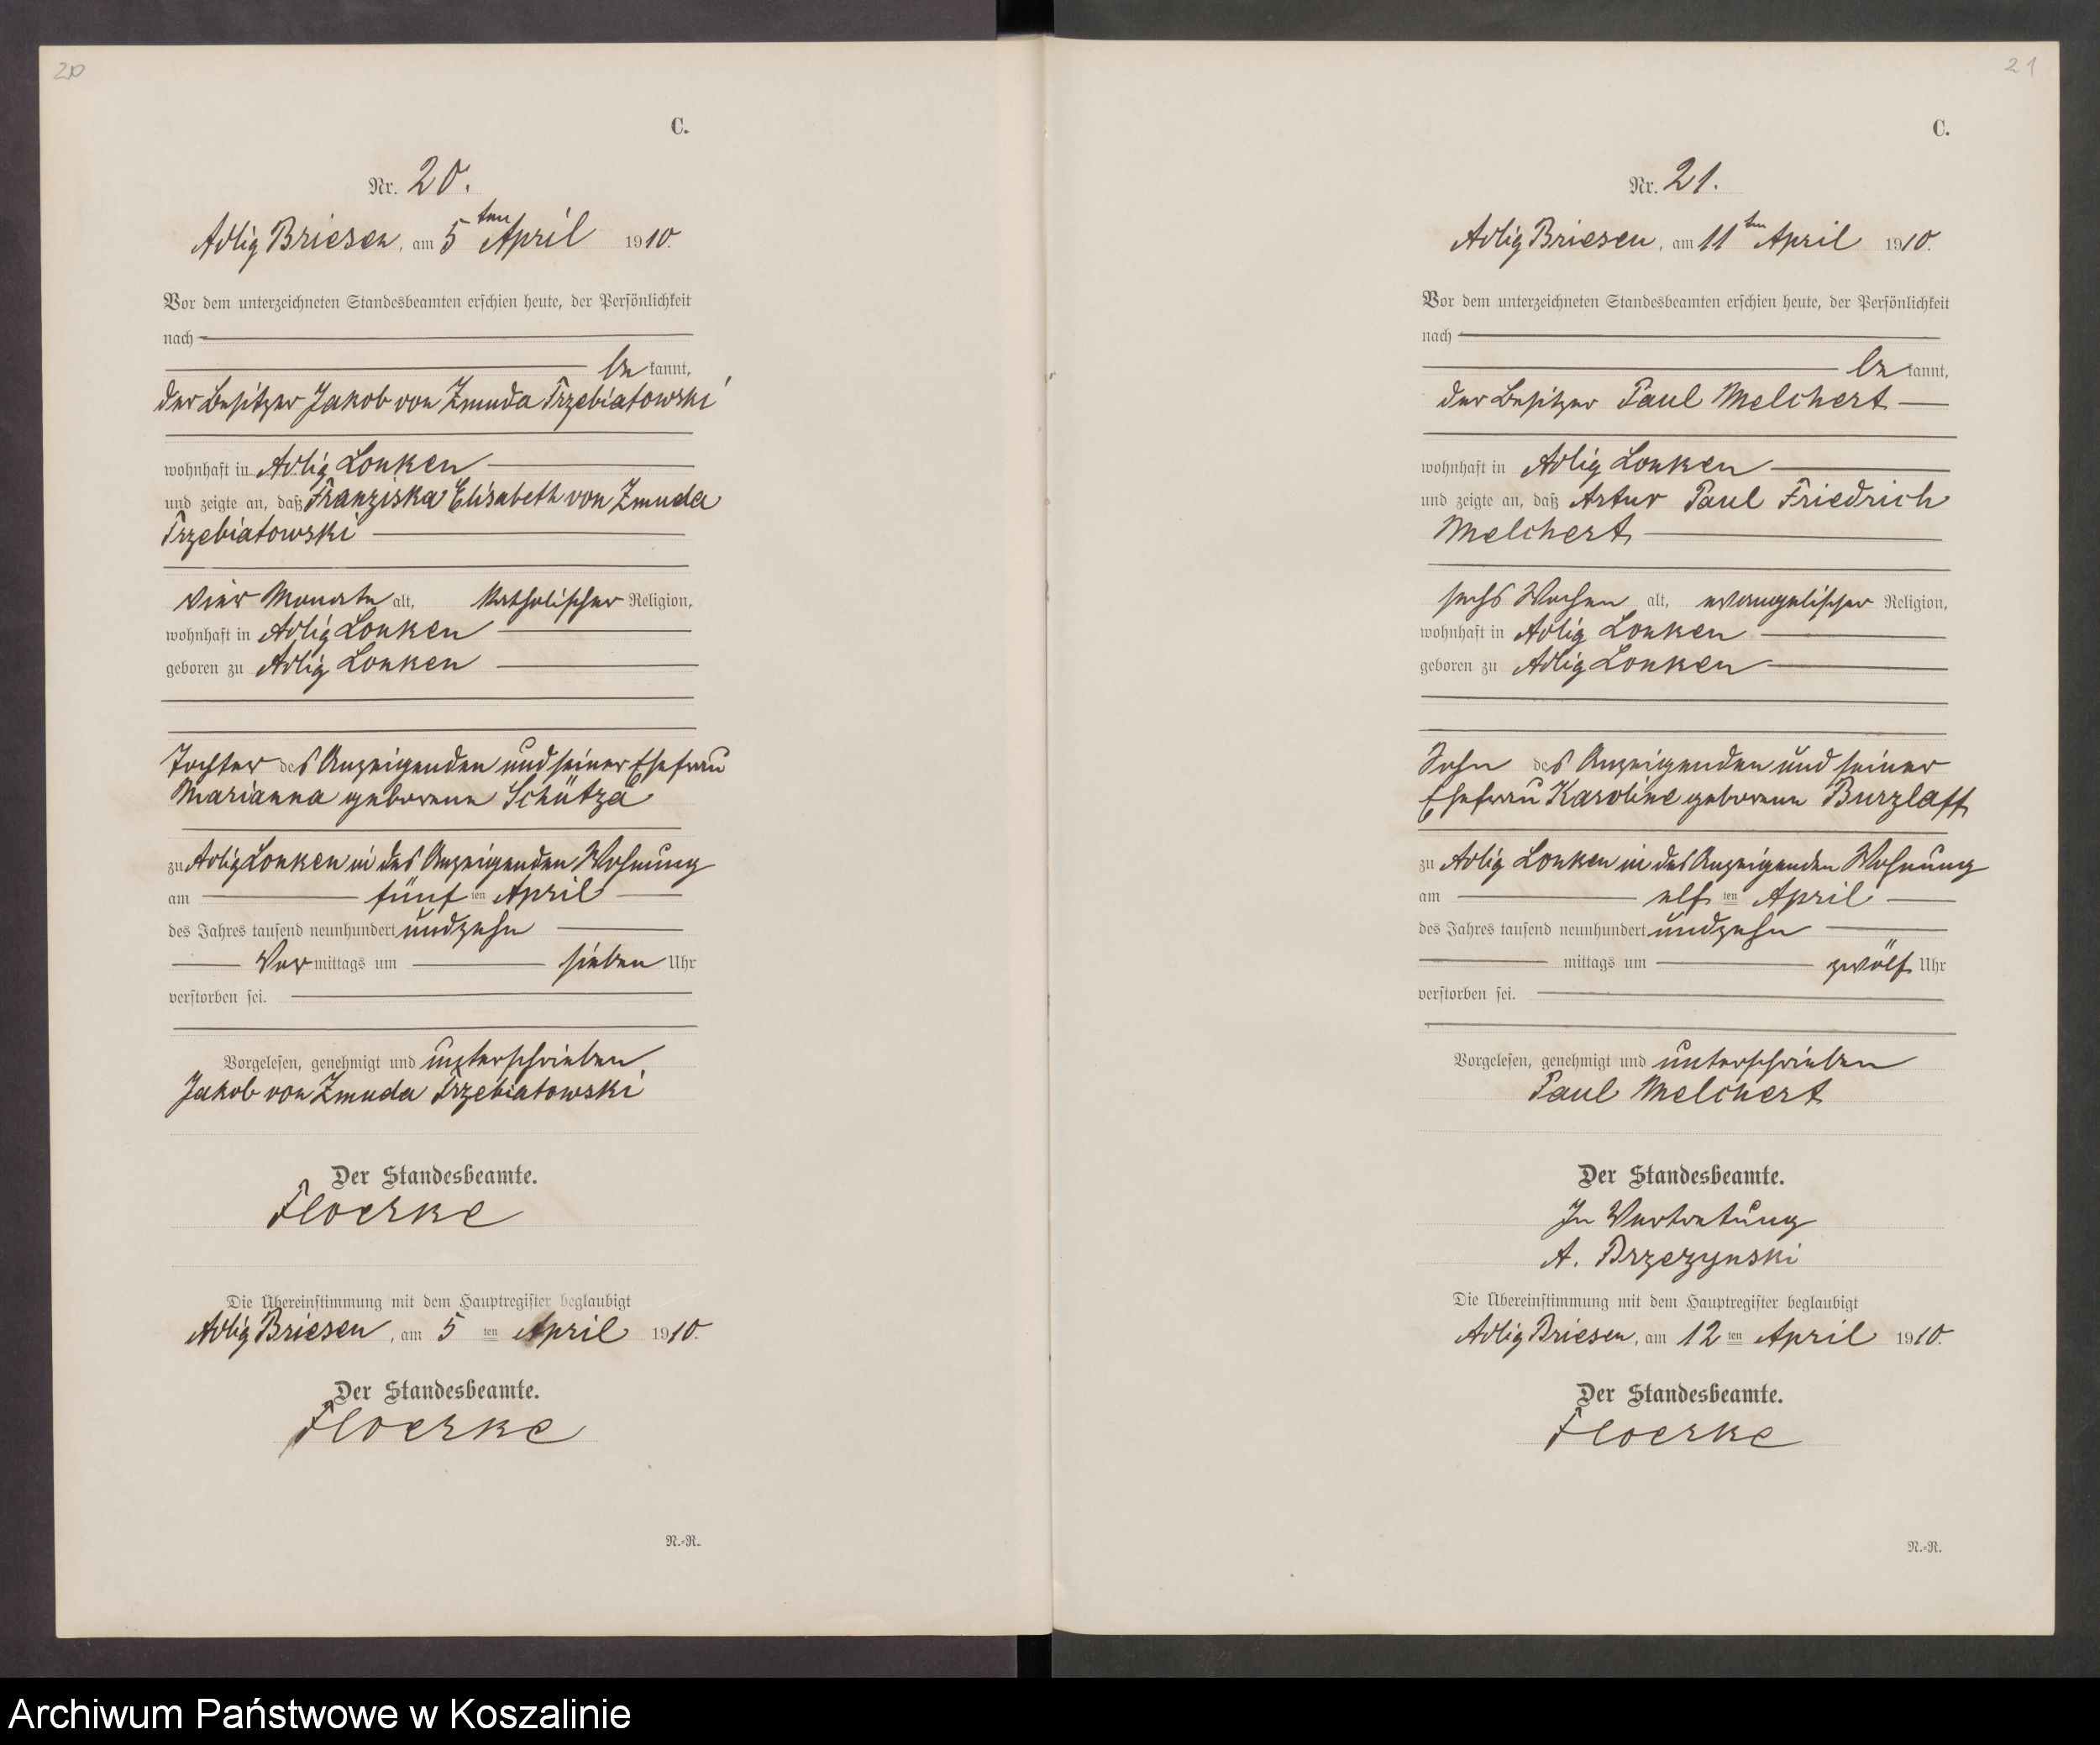 20
C.
Nr. 20.
Adlig Briesen, am 5ten April 1910.
Vor dem unterzeichneten Standesbeamten erschien heute, der Persönlichkeit
nach
be kannt,
der Besitzer Jakob von Zmuda Trzebiatowski
wohnhaft in Adlig Lonken
und zeigte an, daß Franziska Elisabeth von Zmuda
Trzebiatowski
vier Monate alt, katholischer Religion,
wohnhaft in Adlig Lonken
geboren zu Adlig Lonken
Tochter des Anzeigenden und seiner Ehefrau
Marianna geborene Schütza
zu Adlig Lonken in des Anzeigenden Wohnung
am fünf ten April
des Jahres tausend neunhundert undzehn
Vor mittags um sieben Uhr
verstorben sei.
Vorgelesen, genehmigt und unterschrieben
Jakob von Zmuda Trzebiatowski
Der Standesbeamte.
Floerke
Die Übereinstimmung mit dem Hauptregister beglaubigt
Adlig Briesen, am 5 ten April 1910.
Der Standesbeamte.
Floerke
N.-R.
21
C.
Nr. 21.
Adlig Briesen, am 11ten April 1910.
Vor dem unterzeichneten Standesbeamten erschien heute, der Persönlichkeit
nach
be kannt,
der Besitzer Paul Melchert
wohnhaft in Adlig Lonken
und zeigte an, daß Artur Paul Friedrich
Melchert
sechs Wochen alt, evangelischer Religion,
wohnhaft in Adlig Lonken
geboren zu Adlig Lonken
Sohn des Anzeigenden und seiner
Ehefrau Karoline geborene Burzlaff
zu Adlig Lonken in des Anzeigenden Wohnung
am elf ten April
des Jahres tausend neunhundert undzehn
mittags um zwölf Uhr
verstorben sei.
Vorgelesen, genehmigt und unterschrieben
Paul Melchert
Der Standesbeamte.
In Vertretung
A. Brzezynski
Die Übereinstimmung mit dem Hauptregister beglaubigt
Adlig Briesen, am 12 ten April 1910.
Der Standesbeamte.
Floerke
N.-R.
Archiwum Państwowe w Koszalinie